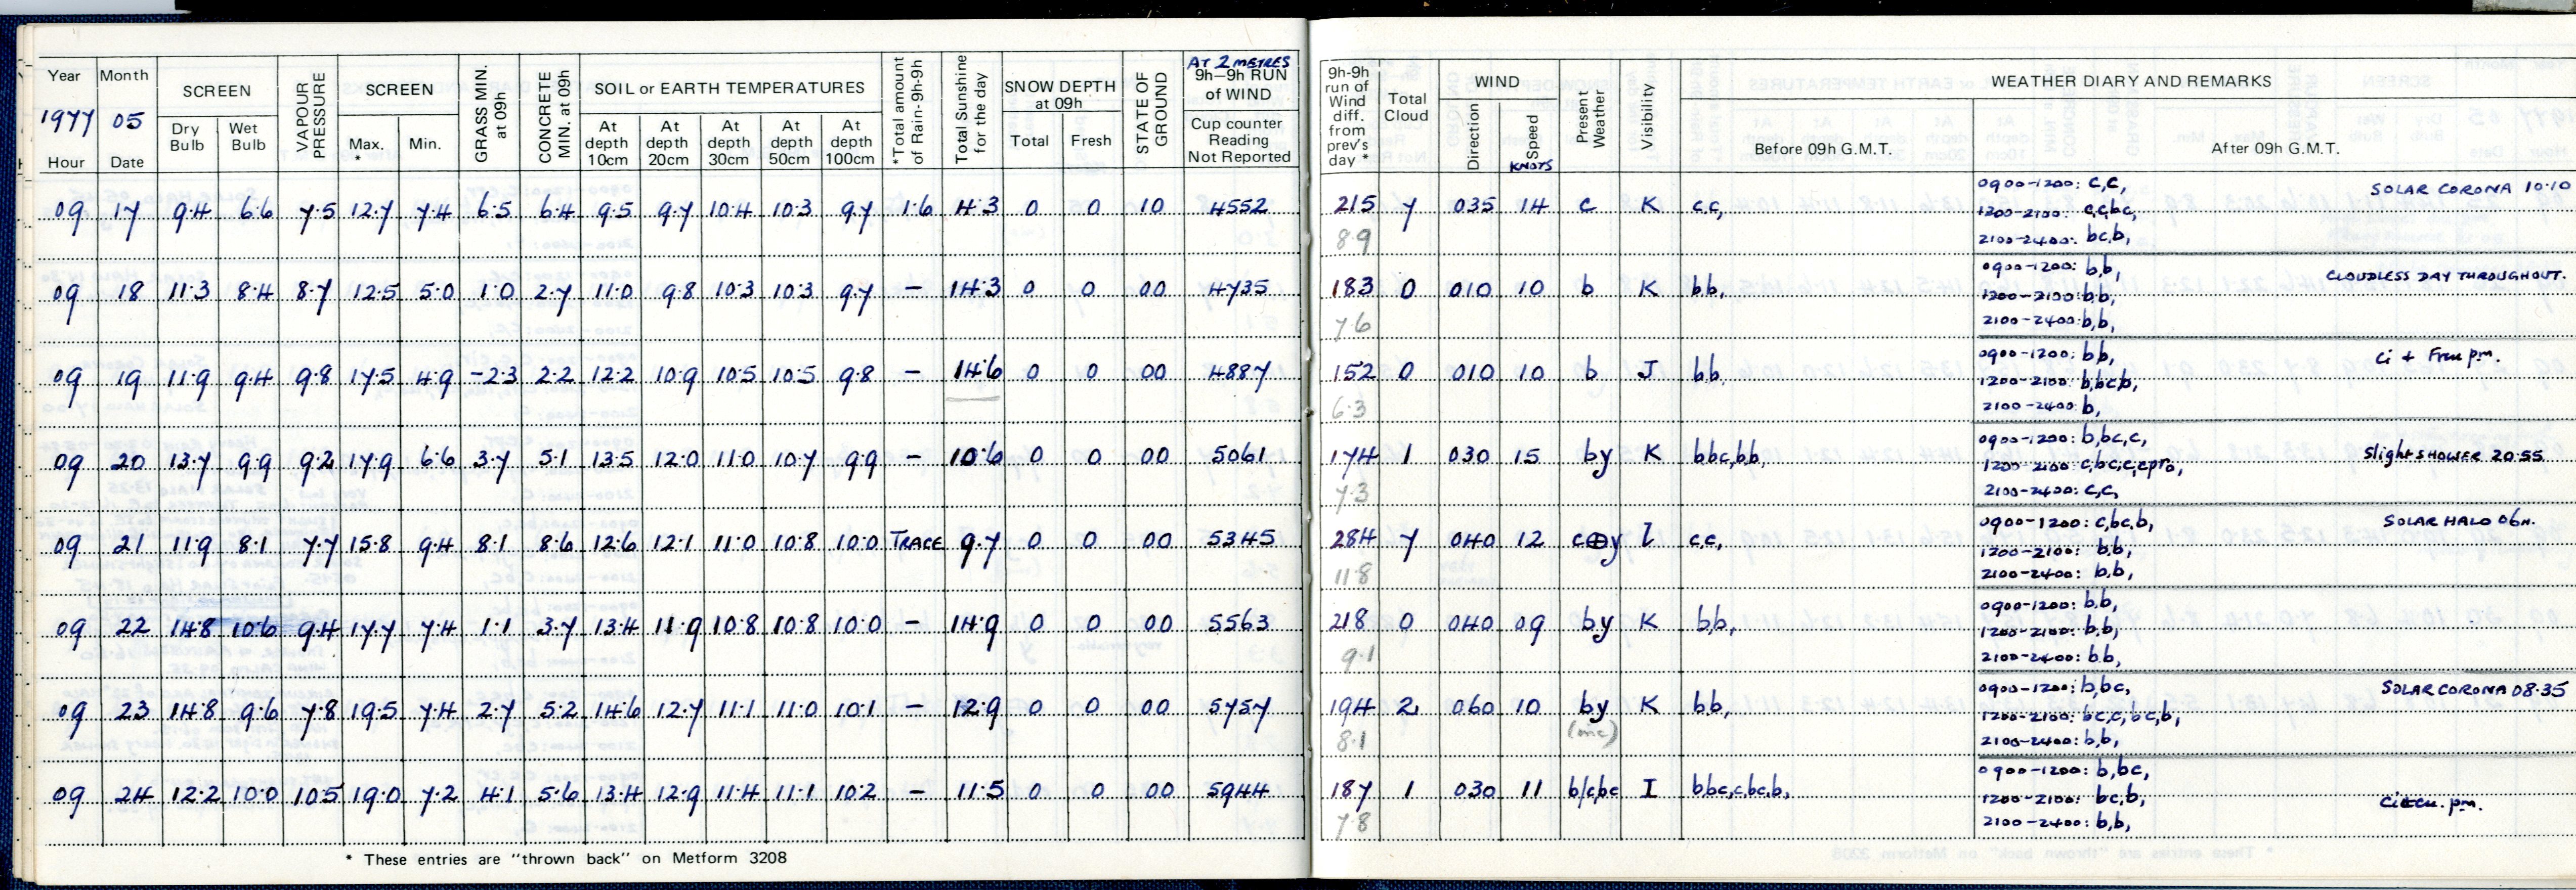 Year Month SCREEN VAPOUR PRESSURE SCREEN GRASS MIN. at 09h CONCRETE MIN. at 09h SOIL or EARTH TEMPERATURES *Total amount of Rain-9h-9h Total Sunshine for the day SNOW DEPTH at 09h STATE OF GROUND AT 2 METRES 9h–9h RUN of WIND
1977 05
Hour Date Dry Bulb Wet Bulb Max. * Min. At depth 10cm At depth 20cm At depth 30cm At depth 50cm At depth 100cm Total Fresh Cup counter Reading Not Reported
09 17 9.4 6.6 7.5 12.7 7.4 6.5 6.4 9.5 9.7 10.4 10.3 9.7 1.6 4.3 0 0 10 4552
09 18 11.3 8.4 8.7 12.5 5.0 1.0 2.7 11.0 9.8 10.3 10.3 9.7 – 14.3 0 0 00 4735
09 19 11.9 9.4 9.8 17.5 4.9 -2.3 2.2 12.2 10.9 10.5 10.5 9.8 – 14.6 0 0 00 4887
09 20 13.7 9.9 9.2 17.9 6.6 3.7 5.1 13.5 12.0 11.0 10.7 9.9 – 10.6 0 0 00 5061
09 21 11.9 8.1 7.7 15.8 9.4 8.1 8.6 12.6 12.1 11.0 10.8 10.0 TRACE 9.7 0 0 00 5345
09 22 14.8 10.6 9.4 17.7 7.4 1.1 3.7 13.4 11.9 10.8 10.8 10.0 – 14.9 0 0 00 5563
09 23 14.8 9.6 7.8 19.5 7.4 2.7 5.2 14.6 12.7 11.1 11.0 10.1 – 12.9 0 0 00 5757
09 24 12.2 10.0 10.5 19.0 7.2 4.1 5.6 13.4 12.9 11.4 11.1 10.2 – 11.5 0 0 00 5944
* These entries are "thrown back" on Metform 3208
9h-9h run of Wind diff. from prev's day * Total Cloud WIND Present Weather Visibility WEATHER DIARY AND REMARKS
Direction Speed KNOTS Before 09h G.M.T. After 09h G.M.T.
0900-1200: c,c, SOLAR CORONA 10.10
215 7 035 14 c K c,c, 1200-2100: c,c,bc,
8.9 2100-2400: bc,b,
0900-1200: b,b, CLOUDLESS DAY THROUGHOUT.
183 0 010 10 b K b,b, 1200-2100: b,b,
7.6 2100-2400: b,b,
0900-1200: b,b, Ci + Fcu pm.
152 0 010 10 b J b,b, 1200-2100: b,bc,b,
6.3 2100-2400: b,
0900-1200: b,bc,c,
174 1 030 15 by K b,bc,b,b, 1200-2100: c,bc,c,cpr₀, Slight SHOWER 20.55
7.3 2100-2400: c,c,
0900-1200: c,bc,b, SOLAR HALO 06H.
284 7 040 12 c⊕y I c,c, 1200-2100: b,b,
11.8 2100-2400: b,b,
0900-1200: b,b,
218 0 040 09 by K b,b, 1200-2100: b,b,
9.1 2100-2400: b,b,
0900-1200: b,bc, SOLAR CORONA 08.35
194 2 060 10 by K b,b, 1200-2100: bc,c,bc,b,
8.1 2100-2400: b,b,
0900-1200: b,bc,
187 1 030 11 b/c,bc I b,bc,c,bc,b, 1200-2100: bc,b, Ci+cu. pm.
7.8 2100-2400: b,b,